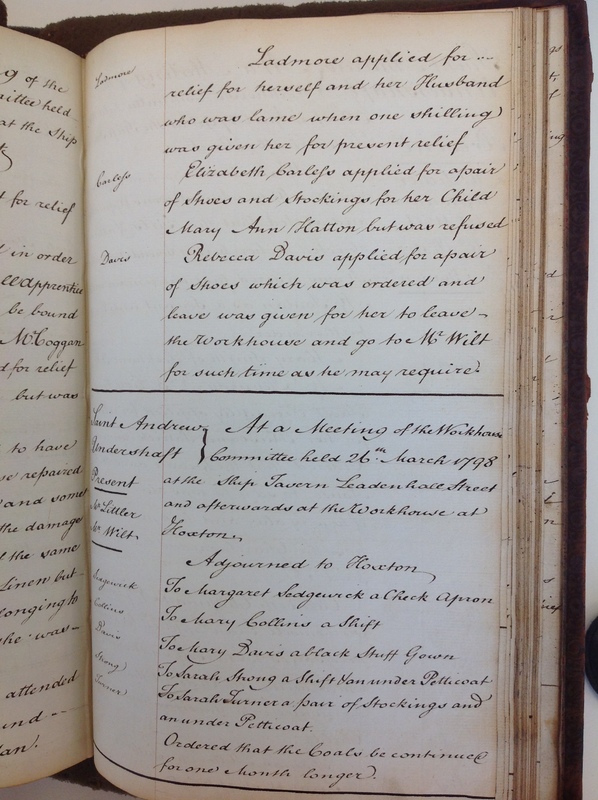 g of the
mittee held
at the Ship
d for relief
d in order
ell apprentice
be bound
Mr Coggan
d for relief
but was
to have
se repaired
and some
the damage
of the same
Linen but
longing to
she was
attended
und
Ladmore
Ladmore applied for
relief for herself and her Husband
who was lame when one shilling
was given her for present relief
Carless
Elizabeth Carless applied for a pair
of Shoes and Stockings for her Child
Mary Ann Hatton but was refused
Davis
Rebecca Davis applied for a pair
of Shoes which was ordered and
leave was given for her to leave
the Workhouse and go to Mr Wilt
for such time as he may require
Saint Andrew
Undershaft
At a Meeting of the Workhouse
Committee held 26th March 1798
Present
at the Ship Tavern Leadenhall Street
Mr Littler
and afterwards at the Workhouse at
Mr Wilt
Hoxton
Adjourned to Hoxton
Sedgewick
To Margaret Sedgewick a Check Apron
Collins
To Mary Collins a Shift
Davis
To Mary Davis a black Stuff Gown
Strong
To Sarah Strong a Shift & an under Petticoat
Turner
To Sarah Turner a pair of Stockings and
an under Petticoat.
Ordered that the Coals be continued
for one Month longer.